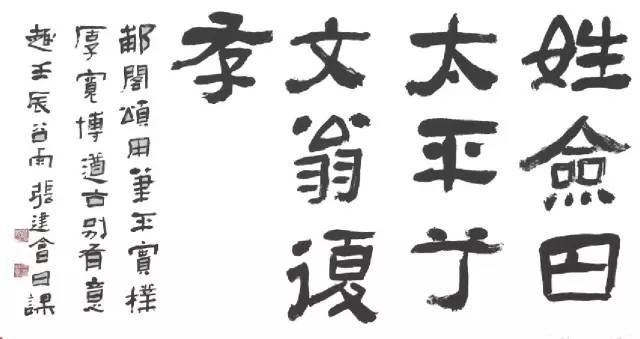 姓僉曰
太平兮
文翁復
存
郙閣頌用筆平實樸
厚寬博遒古別有意
趣壬辰谷雨張建會日課